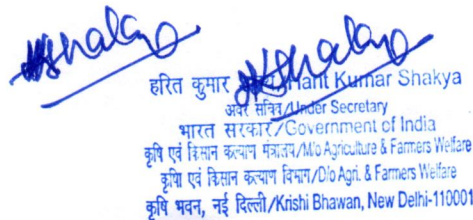 हरित कुमार Kumar Shakya
अवर सचिव/Under Secretary
भारत सरकार/Government of India
कृषि एवं किसान कल्याण मंत्रालय/M/o Agriculture & Farmers Welfare
कृषि एवं किसान कल्याण विभाग/D/o Agri. & Farmers Welfare
कृषि भवन, नई दिल्ली/Krishi Bhawan, New Delhi-110001